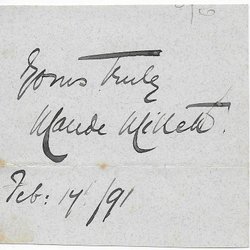 Yours truly
Maude Millett.
Feb: 17th/91